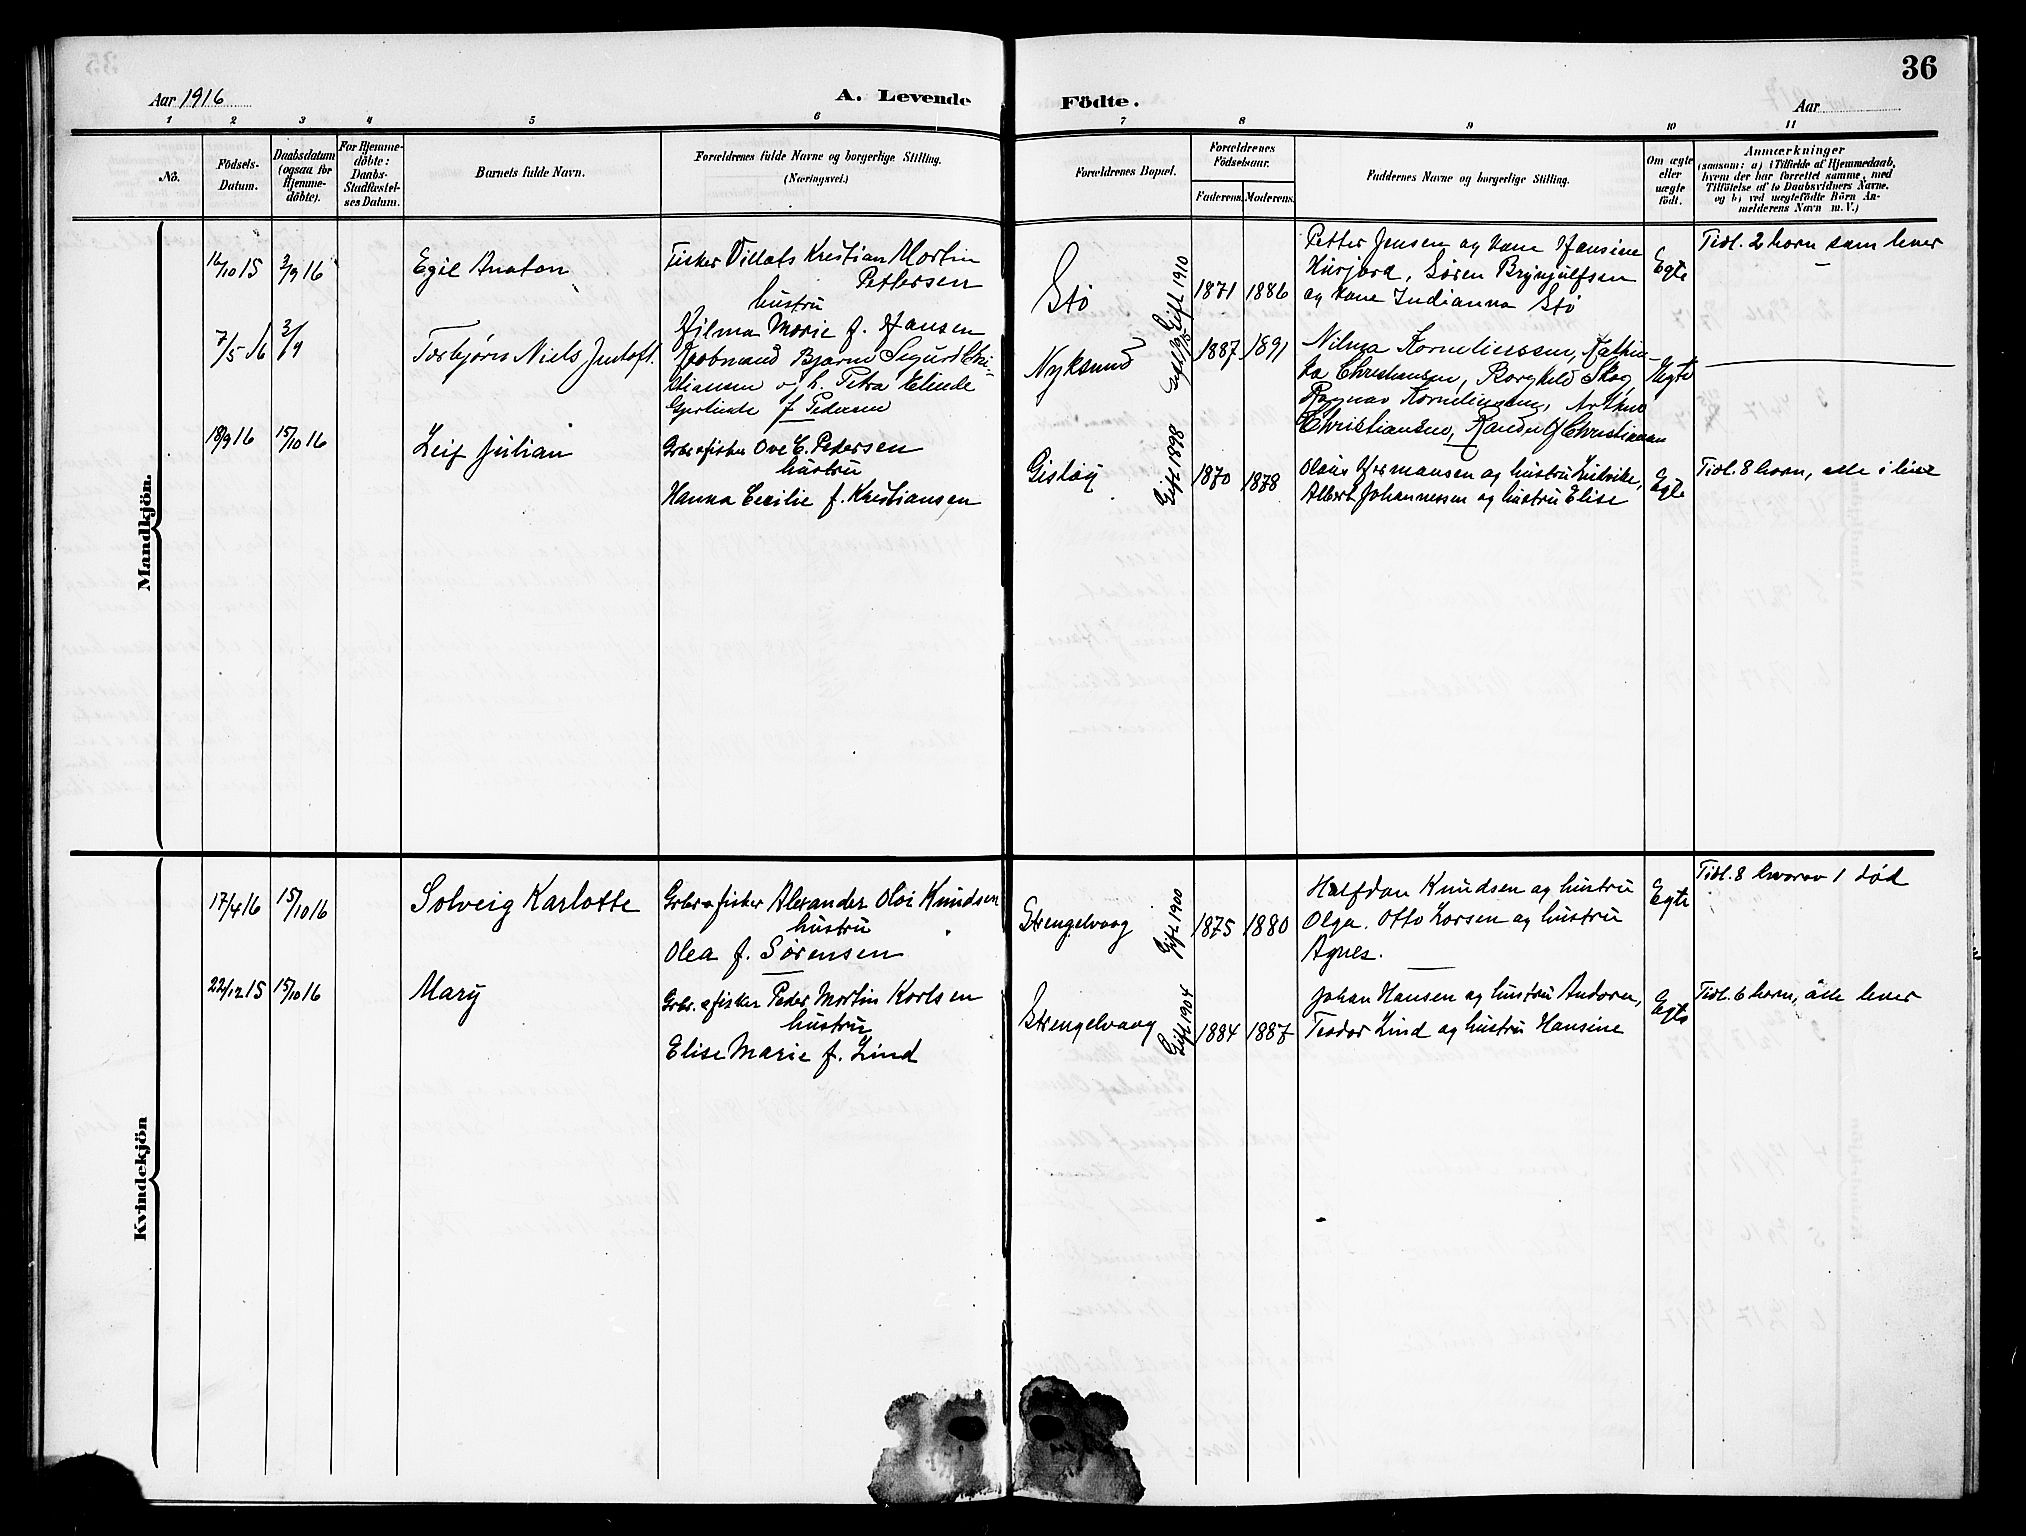 36
Aar 1916
A. Levende
Födte.
Aar
1 2 3 4 5 6 7 8 9 10 11
No.
Födsels-
Datum.
Daabsdatum
(ogsaa for
Hjemme-
döbte).
For Hjemme-
döbte:
Daabs-
Stadfæstel-
ses Datum.
Barnets fulde Navn.
Forældrenes fulde Navne og borgerlige Stilling.
(Næringsvei.)
Forældrenes Bopæl.
Forældrenes
Födselsaar.
Faderens.
Moderens.
Faddernes Navne og borgerlige Stilling.
Om ægte
eller
uægte
födt.
Anmærkninger
(saasom: a) i Tilfælde af Hjemmedaab,
hvem der har forrettet samme, med
Tilföielse af to Daabsvidners Navne.
og b) ved uægtefödte Börn An-
melderens Navn m. V.)
Mandkjön.
16/10 15
3/9 16
Egil Anaton
Fisker Villats Kristian Martin
Pettersen
hustru
Hilma Marie f. Hansen
Stø
Gift 1910
1871
1886
Petter Jensen og kone Hansine
Hurjord, Søren Brynjulfsen
og kone Indianna Stø
Egte
Tidl. 2 barn som lever
7/5 16
3/9
Torbjørn Niels Justoft.
Kjøbmand Bjarne Sigurd Chri-
stiansen og h. Petra Elinde
Gjertinte f Pedersen
Nyksund
Gift 1915
1887
1891
Kornelieussen, Kathin-
ka Christiansen, Borghild Skog,
Ragnar Korneliussen, Arthur
Christiansen, Randulf Christiansen
Ægte
18/9 16
15/10 16
Leif Julian
Grbr. o fisker Ove C. Pedersen
hustru
Hanna Cecilie f. Kristiansen
Gisløy
Gift 1898
1870
1878
Olaus Hermansen og hustru Lutvike,
Albert Johannessen og hustru Elise
Egte
Tidl. 8 barn, alle i live
Kvindekjön
17/4 16
15/10 16
Solveig Karlotte
Grbr o fisker Alexander Olai Knudsen
hustru
Olea f. Sørensen
Strengelvaag
Gift 1900
1875
1880
Halfdan Knudsen og hustru
Olga. Otto Larsen og hustru
Agnes.
Egte
Tidl. 8 hvorav 1 død
22/12 15
15/10 16
Mary
Grbr. o fisker Peder Martin Karlsen
hustru
Elise Marie f. Lind
Strengelvaag
Gift 1904
1884
1887
Johan Hansen og hustru Andora,
Teodor Lind og hustru Hansine
Egte
Tidl. 6 barn, alle lever